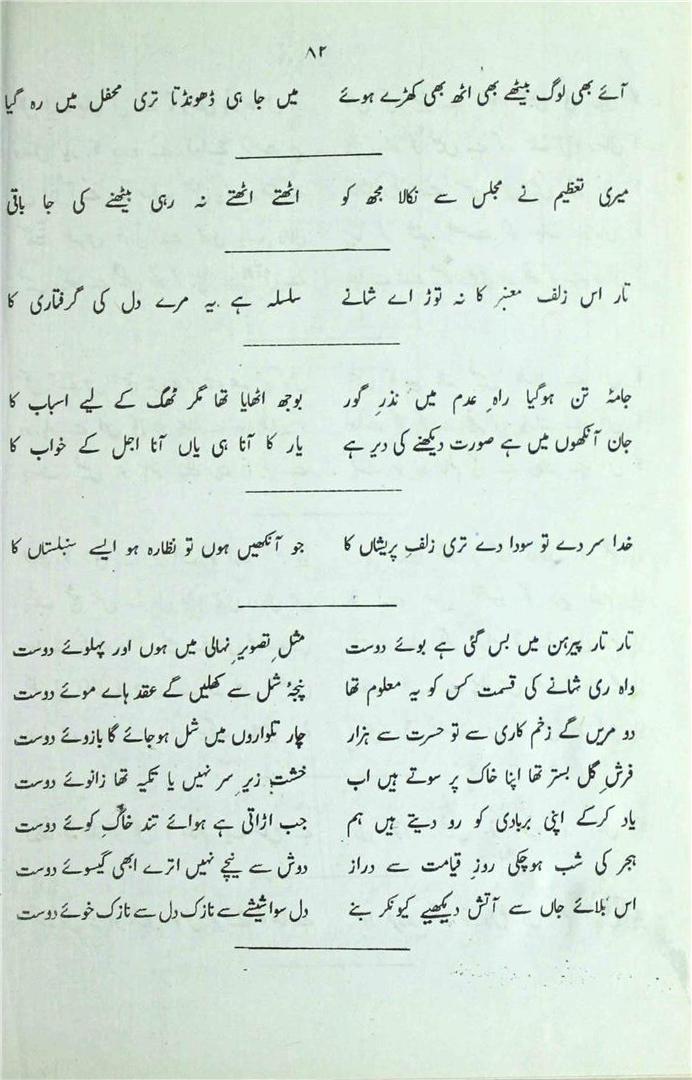 ۸۲
آئے بھی لوگ بیٹھے بھی اٹھ بھی کھڑے ہوئے میں جا ہی ڈھونڈتا تری محفل میں رہ گیا
میری تعظیم نے مجلس سے نکالا مجھ کو اٹھتے اٹھتے نہ رہی بیٹھنے کی جا باقی
تار اس زلف معنبر کا نہ توڑ اے شانے سلسلہ ہے یہ مرے دل کی گرفتاری کا
جامۂ تن ہوگیا راہِ عدم میں نذرِ گور بوجھ اٹھایا تھا مگر ٹھگ کے لیے اسباب کا
جان آنکھوں میں ہے صورت دیکھنے کی دیر ہے یار کا آنا ہی یاں آنا اجل کے خواب کا
خدا سر دے تو سودا دے تری زلفِ پریشاں کا جو آنکھیں ہوں تو نظارہ ہو ایسے سنبلستاں کا
تار تار پیرہن میں بس گئی ہے بوئے دوست مثلِ تصویرِ نہالی میں ہوں اور پہلوئے دوست
واہ ری شانے کی قسمت کس کو یہ معلوم تھا پنجۂ شل سے کھلیں گے عقد ہاے موئے دوست
دو مریں گے زخم کاری سے تو حسرت سے ہزار چار تلواروں میں شل ہوجائے گا بازوئے دوست
فرشِ گل بستر تھا اپنا خاک پر سوتے ہیں اب خشتِ زیرِ سر نہیں یا تکیہ تھا زانوئے دوست
یاد کرکے اپنی بربادی کو رو دیتے ہیں ہم جب اڑاتی ہے ہوائے تند خاکِ کوئے دوست
ہجر کی شب ہوچکی روزِ قیامت سے دراز دوش سے نیچے نہیں اترے ابھی گیسوئے دوست
اس بلائے جاں سے آتش دیکھیے کیونکر بنے دل سوا شیشے سے نازک دل سے نازک خوئے دوست